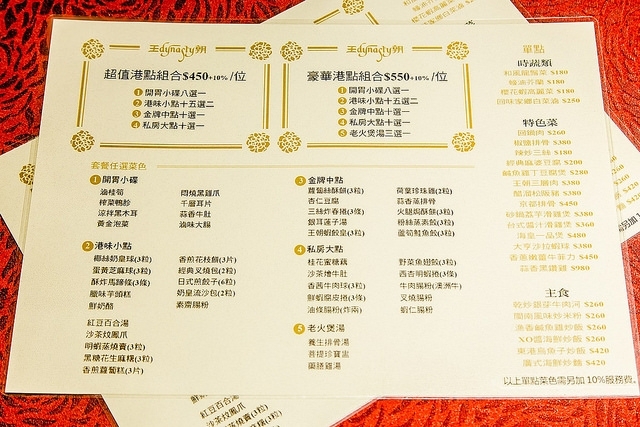 王dynasty朝
超值港點組合$450+10% /位
1 開胃小碟八選一
2 港味小點十五選二
3 金牌中點十選一
4 私房大點十選一
王dynasty朝
豪華港點組合$550+10% /位
1 開胃小碟八選一
2 港味小點十五選二
3 金牌中點十選一
4 私房大點十選一
5 老火煲湯三選一
套餐任選菜色
1 開胃小碟
滷桂筍 悶燒黑雞爪
榨菜鴨胗 千層耳片
涼拌黑木耳 蒜香牛肚
黃金泡菜 滷味大腸
2 港味小點
椰絲奶皇球(3粒) 香煎花枝餅(3片)
蛋黃芝麻球(3粒) 經典叉燒包(2粒)
酥炸馬蹄條(3條) 日式煎餃子(6粒)
臘味芋頭糕 奶皇流沙包(2粒)
鮮奶酪 素齋腸粉
紅豆百合湯
沙茶炆鳳爪
明蝦蒸燒賣(3粒)
黑糖花生麻糬(3粒)
香煎蘿蔔糕(3片)
3 金牌中點
蘿蔔絲酥餅(3粒) 荷葉珍珠雞(2粒)
杏仁豆腐 蒜香蒸排骨
三絲炸春捲(3條) 火腿焗酥餅(3粒)
銀耳蓮子湯 粉絲蒸素餃(3粒)
王朝蝦餃皇(3粒) 蘆筍鮮魚餃(3粒)
4 私房大點
桂花蜜糖藕 野菜魚翅餃(3粒)
沙茶燴牛肚 西杏明蝦捲(3條)
香茜牛肉球(3粒) 牛肉腸粉(澳洲牛)
鮮蝦腐皮捲(3條) 叉燒腸粉
油條腸粉(炸兩) 蝦仁腸粉
5 老火煲湯
養生排骨湯
菩提珍寶盅
藥膳雞湯
單點
時蔬類
和風龍鬚菜 $180
蠔油芥蘭 $180
櫻花蝦高麗菜 $180
回味家鄉白菜滷 $250
特色菜
回鍋肉 $260
椒鹽排骨 $380
辣炒三絲 $180
經典麻婆豆腐 $200
鹹魚雞丁豆腐煲 $280
王朝三層肉 $380
醋溜松阪豬 $380
京都排骨 $450
砂鍋荔芋滑雞煲 $380
台式醬汁滑雞煲 $360
海皇一品煲 $480
大亨沙拉蝦球 $380
香蔥嫩薑牛菲力 $450
蒜香黑鑽雞 $980
主食
乾炒銀芽牛肉河 $260
閩南風味炒米粉 $260
漁香鹹魚雞炒飯 $260
XO醬海鮮炒飯 $260
東港烏魚子炒飯 $420
廣式海鮮炒麵 $420
以上單點菜色需另加 10%服務費。
紅豆百合湯
沙茶炆鳳爪